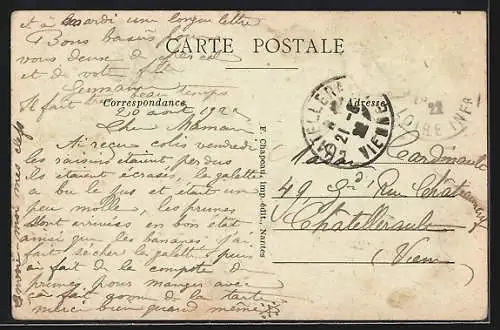 et à mardi une longue lettre
Bons baisers
vous deux
et de votre
Germaine
Il fait beau temps
CARTE POSTALE
Correspondance
Adresse
20 août 192
Chère Maman
Ai reçu colis vendredi
les raisins étaient perdus
ils étaient écrasés, la galette
a bu le jus et était un
peu molle, les prunes
sont arrivées en bon état
ainsi que les bananes j'ai
fait sécher la galette, puis
ai fait de la compote de
prunes, pour manger avec
ça fait genre de la tarte
merci bien quand même
mes clefs
F. Chapeau, imp.-édit., Nantes
CHATELLERAULT
21
22
VIENNE
22
LOIRE INFR
Cardinault
49 Gde Rue Châteauneuf
Châtellerault
Vienne